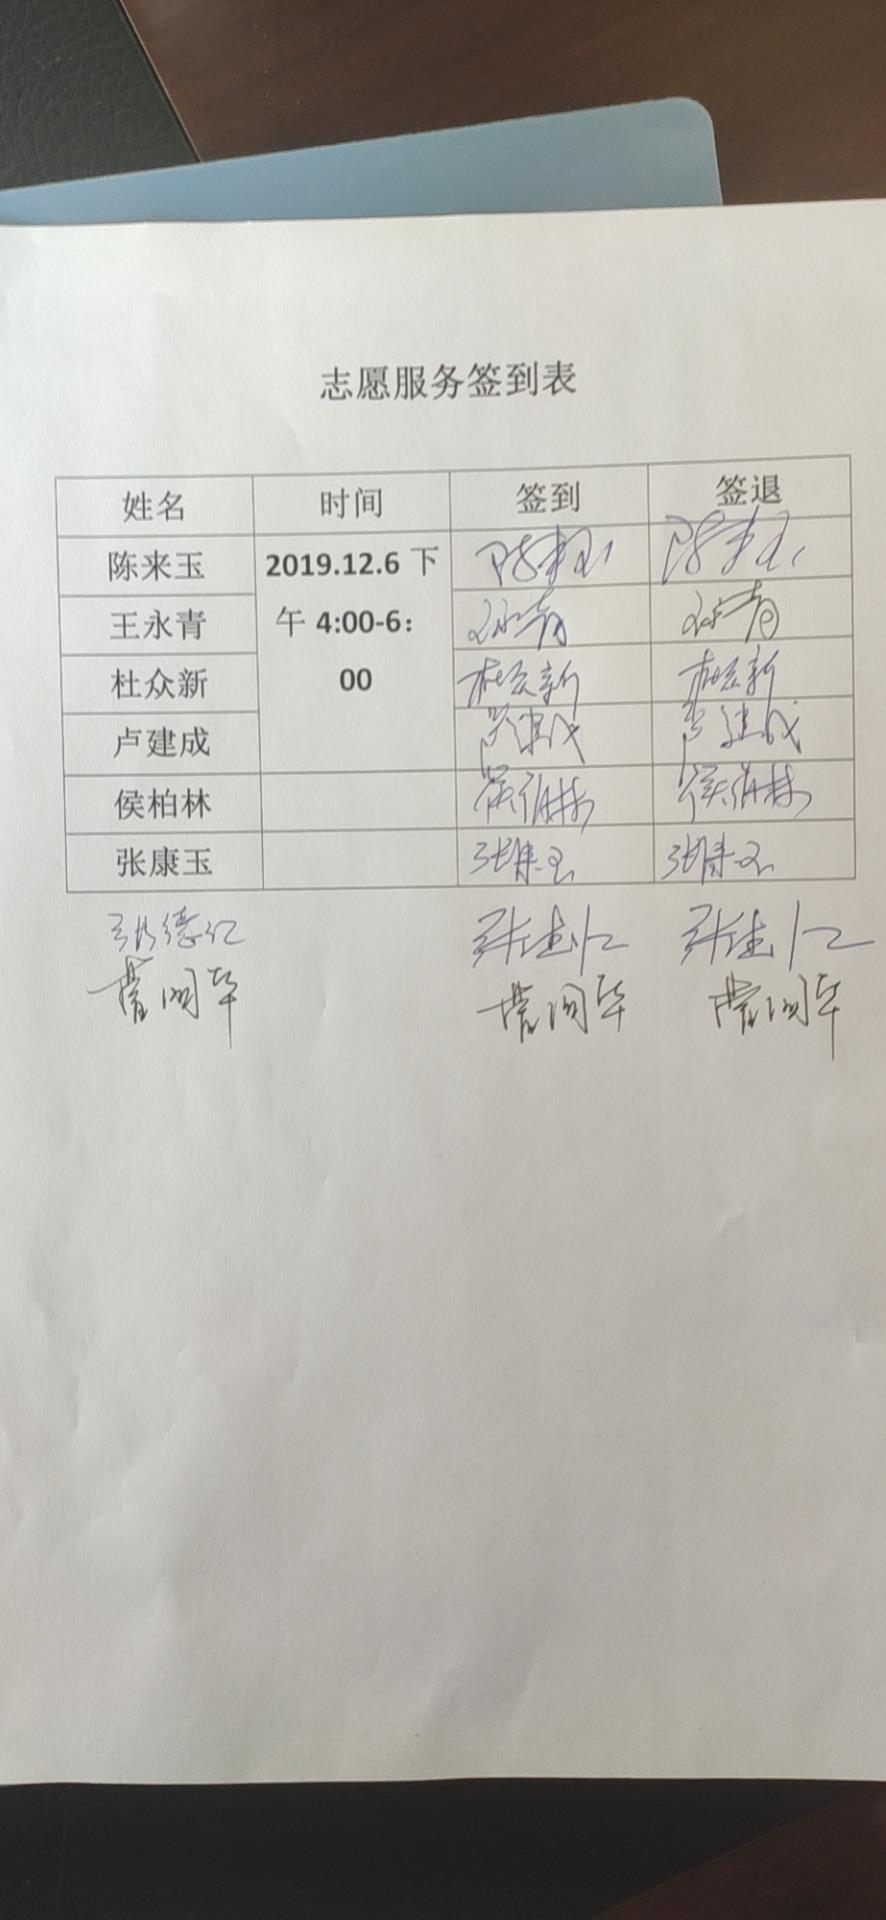 志愿服务签到表
姓名 时间 签到 签退
陈来玉 2019.12.6 下 陈来玉 陈来玉
王永青 午 4:00-6: 王永青 王永青
杜众新 00 杜众新 杜众新
卢建成 卢建成 卢建成
侯柏林 侯柏林 侯柏林
张康玉 张康玉 张康玉
张德仁 张德仁 张德仁